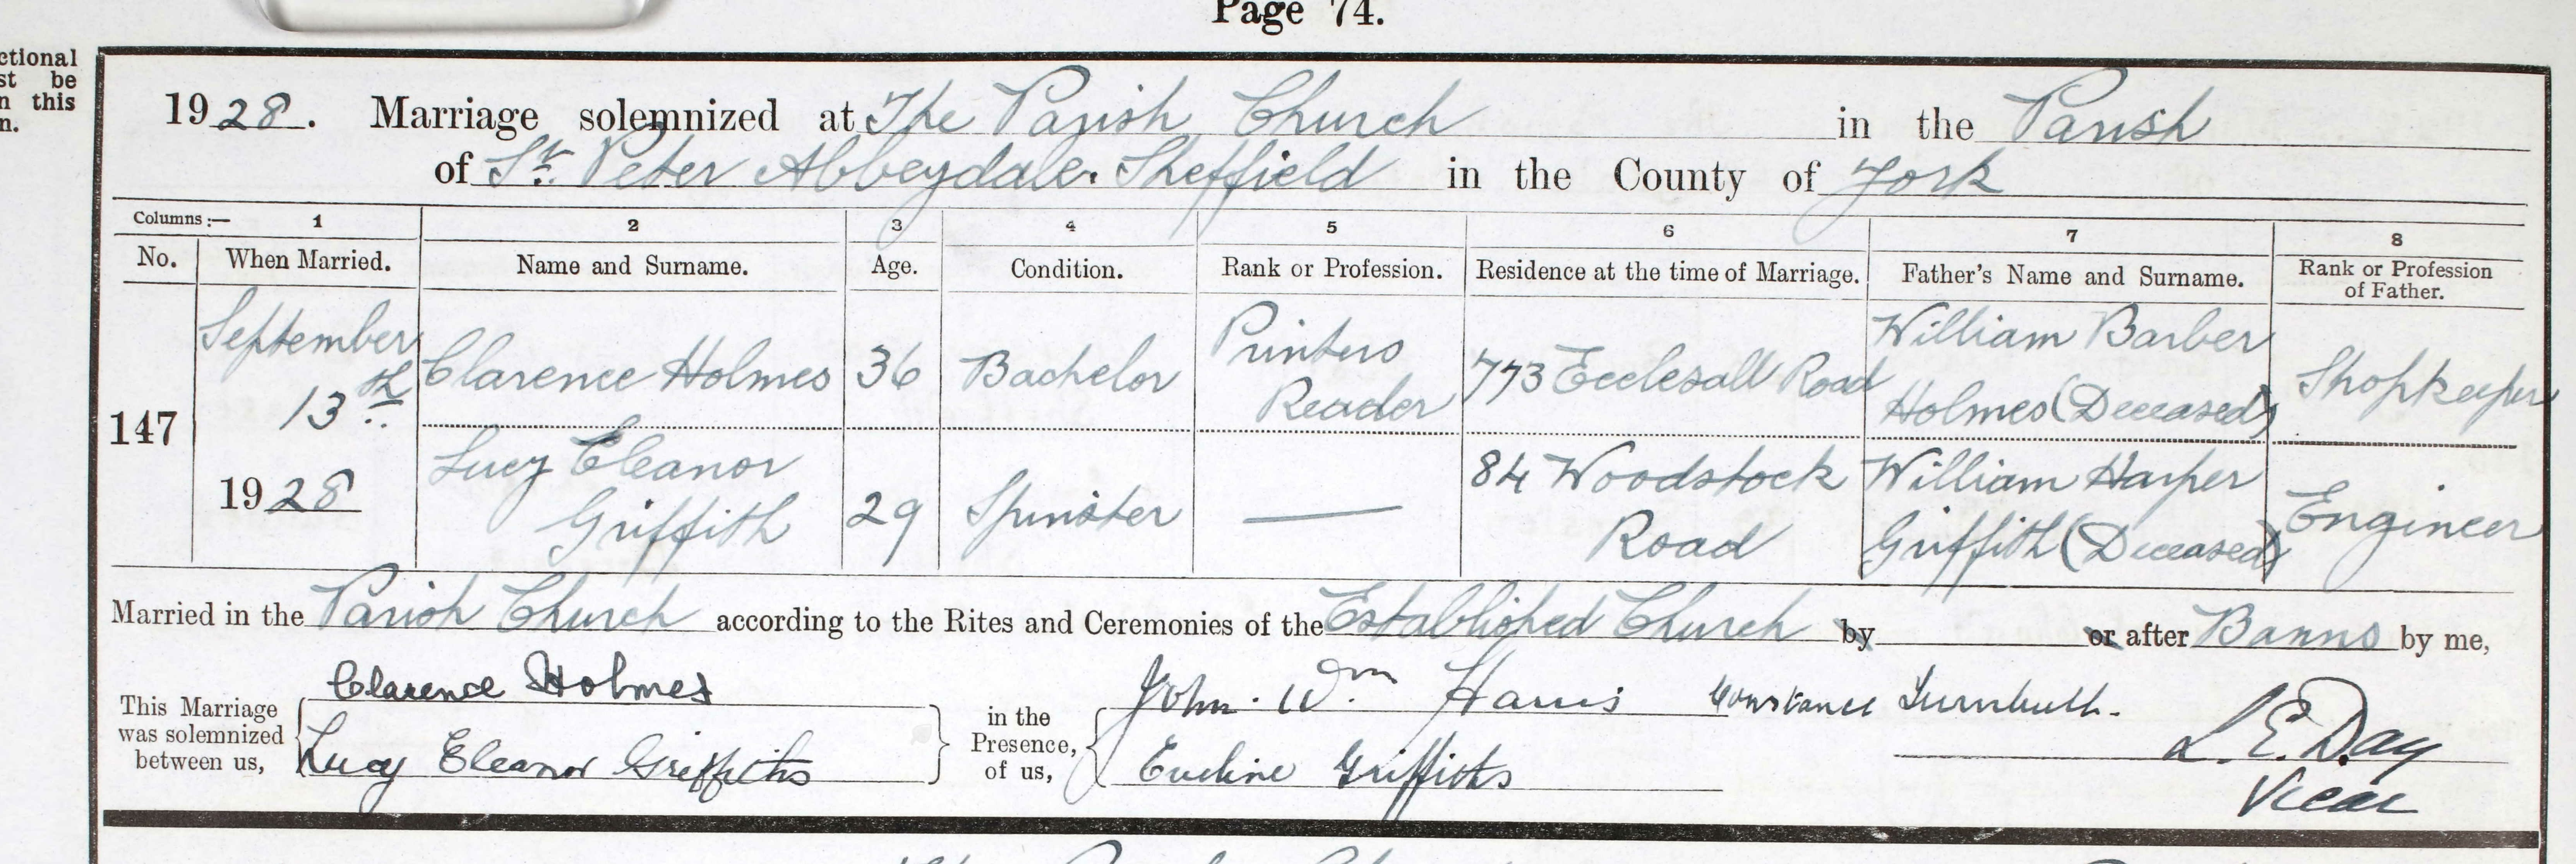 Page 74.
ctional
st be
n this
n.
1928. Marriage solemnized at The Parish Church in the Parish
of St. Peter Abbeydale. Sheffield in the County of York
Columns :— 1 2 3 4 5 6 7 8
No. When Married. Name and Surname. Age. Condition. Rank or Profession. Residence at the time of Marriage. Father's Name and Surname. Rank or Profession of Father.
147
September
13th
1928
Clarence Holmes
36
Bachelor
Printers
Reader
773 Ecclesall Road
William Barber
Holmes (Deceased)
Shopkeeper
Lucy Eleanor
Griffith
29
Spinster
—
84 Woodstock
Road
William Harper
Griffith (Deceased)
Engineer
Married in the Parish Church according to the Rites and Ceremonies of the Established Church by or after Banns by me,
This Marriage
was solemnized
between us,
Clarence Holmes
Lucy Eleanor Griffiths
in the
Presence,
of us,
John. Wm Harris Constance Turnbull.
Eveline Griffiths
L. E. Day
Vicar